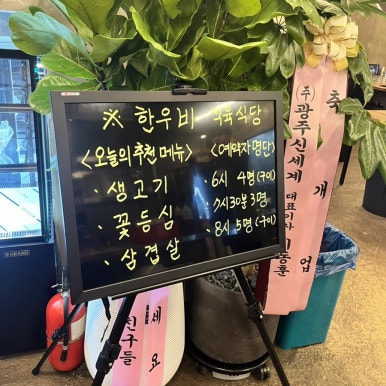 ※ 한우비 식육식당
<오늘의 추천 메뉴>
· 생고기
· 꽃등심
· 삼겹살
<예약자 명단>
· 6시 4명 (구이)
· 7시30분 3명
· 8시 5명 (구이)
축 개업
(주)광주신세계 대표이사 이동훈
세요
친구들
GRAND